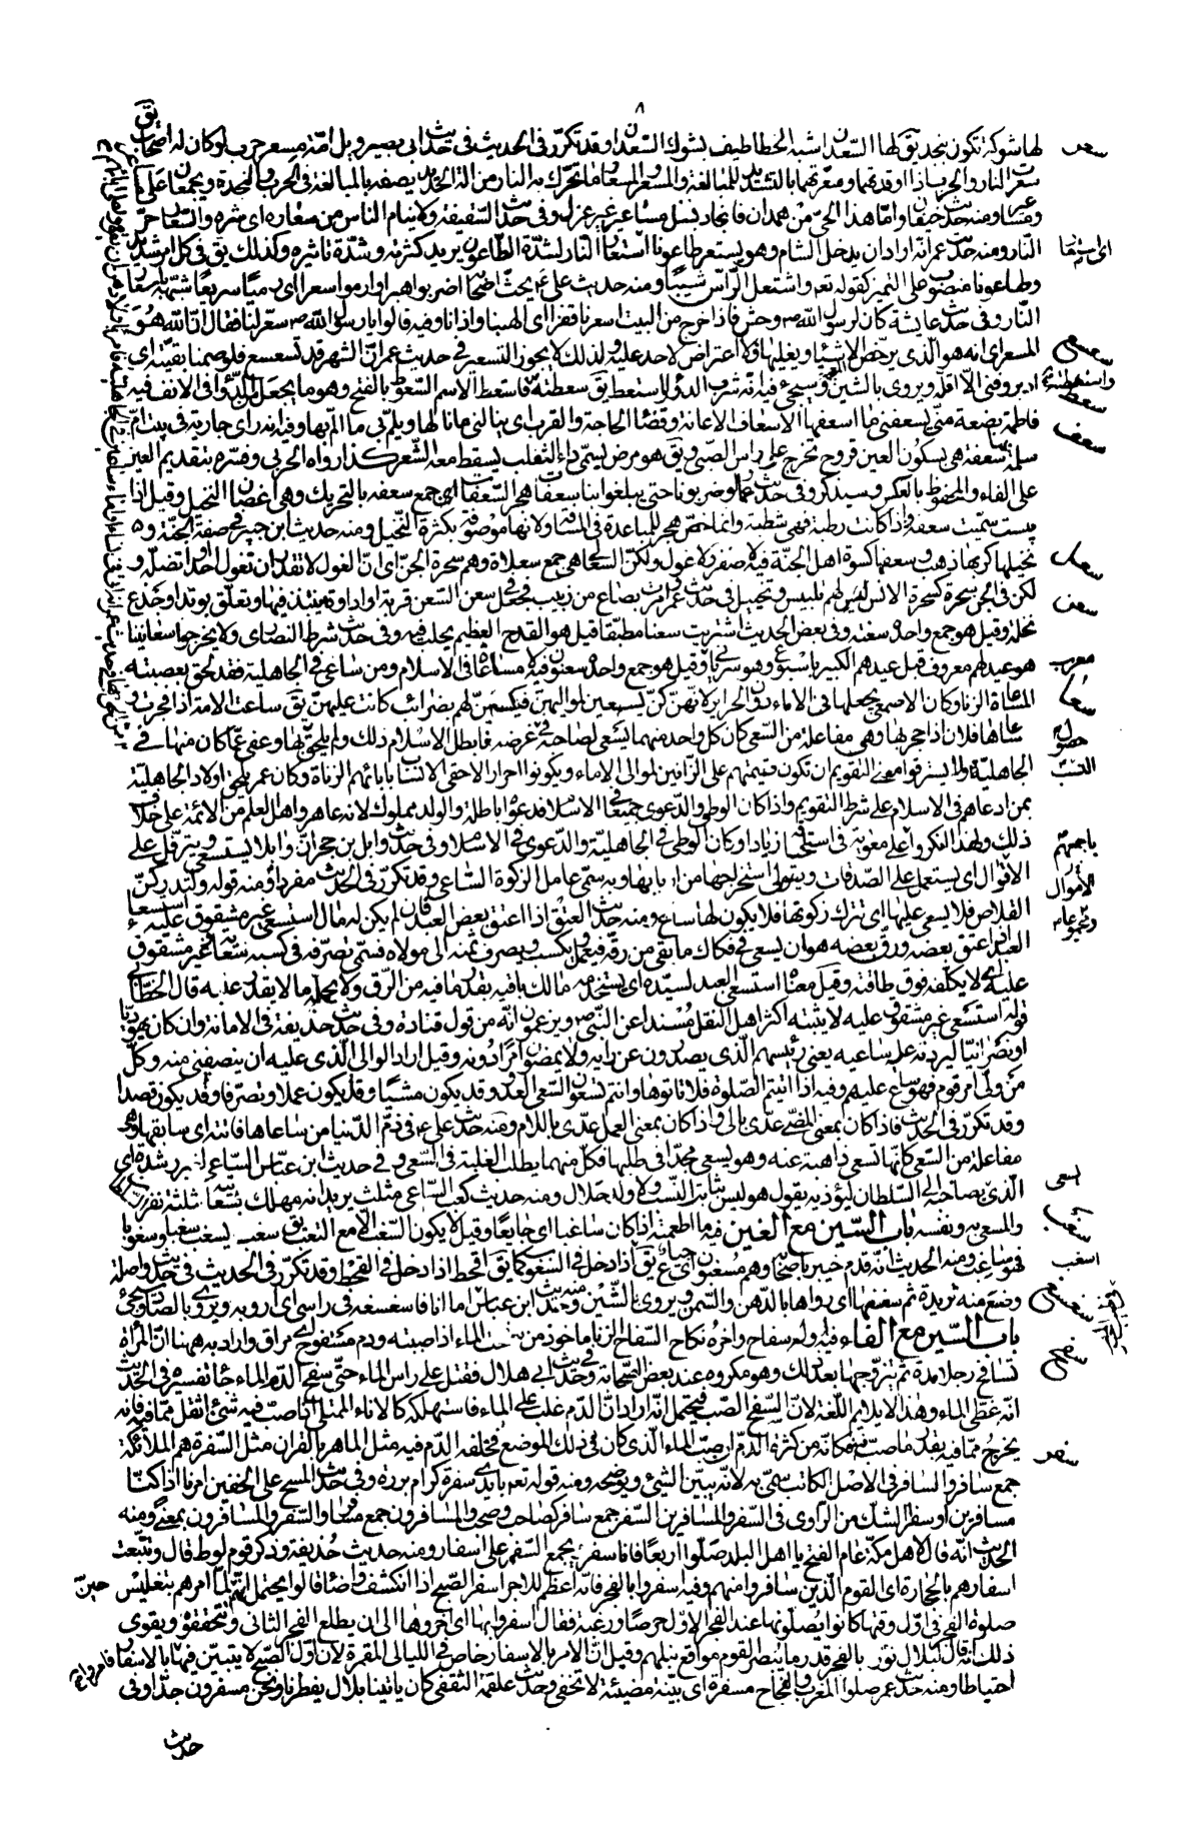 ٨
لها شوكة تكون بنجد يق لها السعدان شبه الخطاطيف بشوك السعدان وقد تكرر في الحديث في حديث ابي بصير ويل امه مسعر حرب لو كان له اصحاب يق
سعر
سعرت النار والحرب اذا اوقدتهما وسعرتهما بالتشديد للمبالغة والمسعر والمسعار ما تحرك به النار من الة الحديد يصفه بالمبالغة في الحرب والنجدة ويجمعان على
ومنه حديث واما هذا الحي من همدان فانجاد بسل مساعير غير عزل وفي حديث السقيفة ولا ينام الناس من سعاره اي شره والسعار حر
النار ومنه حديث عمر انه اراد ان يدخل الشام وهو يستعر طاعونا استعار النار لشدة الطاعون يريد كثرته وشدة تاثيره وكذلك يق في كل امر شديد
وطاعونا منصوب على التميز كقوله تعه واشتعل الراس شيبا ومنه حديث علي ع يحث اصحابه اضربوا هبرا وارموا سعرا اي رميا سريعا شبهه باستعار
النار وفي حديث عايشة كان لرسول الله ص وحش فاذا خرج من البيت اسعرنا قفزا اي الهبنا واذانا وفيه قالوا يا رسول الله ص سعر لنا فقال ان الله هو
المسعر اي انه هو الذي يرخص الاشياء ويغليها فلا اعتراض لاحد عليه ولذلك لا يجوز التسعير في حديث عمر ان الشهر قد تسعسع فلو صمنا بقيته اي
سعسع
ادبر وفنى الا اقله ويروى بالشين وسيجيء فيه انه شرب الدواء واستعط يق سعطته فاستعط الاسم السعوط بالفتح وهو ما يجعل من الدواء في الانف فيه
سعط
فاطمة بضعة مني يسعفني ما اسعفها الاسعاف الاعانة وقضاء الحاجة والقرب اي ينالني ما نالها ويلم بي ما الم بها وفيه انه راى جارية في بيت ام
سعف
سلمة بها سعفة هي بسكون العين قروح تخرج على راس الصبي ويق هو مرض يسمى داء الثعلب يسقط معه الشعر كذا رواه الحربي وفسره بتقديم العين
على الفاء والمحفوظ بالعكس وسيذكر وفي حديث عمار لو ضربونا حتى يبلغوا بنا سعفات هجر السعفات جمع سعفة بالتحريك وهي اغصان النخيل وقيل اذا
يبست سميت سعفة واذا كانت رطبة فهي شطبة وانما خص هجر للمباعدة في المسافة ولانها موصوفة بكثرة النخيل ومنه حديث ابن جبير في صفة الجنة و
نخيلها كربها ذهب وسعفها كسوة اهل الجنة فيه لا صفر ولا غول ولكن السعالى هي جمع سعلاة وهم سحرة الجن اي ان الغول لا تقدر ان تغول احدا وتضله و
سعل
لكن في الجن سحرة كسحرة الانس لهم تلبيس وتخييل في حديث عمر امرت بصاع من زبيب فجعل في سعن السعن قربة او اداوة ينتبذ فيها وتعلق بوتد او جذع
سعن
نخلة وقيل هو جمع واحده سعنة وفي بعض الحديث اشتريت سعنا مطبقا قيل هو القدح العظيم يحلب فيه وفي حديث شرط النصارى ولا يخرجوا سعانينا
هو عيد لهم معروف قبل عيدهم الكبير باسبوع وهو سرياني وقيل هو جمع واحده سعنون فيه لا مساعاة في الاسلام ومن ساعى في الجاهلية فقد لحق بعصبته
معرب
المساعاة الزنا وكان الاصمعي يجعلها في الاماء دون الحراير لانهن كن يسعين لمواليهن فيكسبن لهم بضرائب كانت عليهن يق ساعت الامة اذا فجرت و
سعا
ساعاها فلان اذا فجر بها وهي مفاعلة من السعي كان كل واحد منهما يسعى لصاحبه في غرضه فابطل الاسلام ذلك ولم يلحق بها وعفى عما كان منها في
حصول
الجاهلية معنى التقويم ان تكون قيمتهم على الزانين لموالى الاماء ويكونوا احرارا لاحقى الانساب بابائهم الزناة وكان عمر يلحق اولاد الجاهلية
النسب
بمن ادعاهم في الاسلام على شرط التقويم واذا كان الوطي والدعوى جميعا في الاسلام فدعواه باطلة والولد مملوك لانه عاهر واهل العلم من الائمة على خلاف
ذلك ولهذا انكروا على معوية في استلحاقه زيادا وكان الوطي في الجاهلية والدعوى في الاسلام وفي حديث وايل بن حجر ان وايلا يستسعي ويترفل على
باجمعهم
الاقوال اي يستعمل على الصدقات ويتولى استخراجها من اربابها وبه سمى عامل الزكوة الساعي وقد تكرر في الحديث مفردا ومنه قوله ولتدركن
الاموال
القلاص فلا يسعى عليها اي تترك زكوتها فلا يكون لها ساع ومنه حديث العتق اذا اعتق بعض العبد فان لم يكن له مال استسعى غير مشقوق عليه استسعاء
العبد اذا عتق بعضه ورق بعضه هو ان يسعى في فكاك ما بقي من رقه فيعمل ويكسب ويصرف ثمنه الى مولاه فسمى تصرفه في كسبه سعاية غير مشقوق
عليه اي لا يكلفه فوق طاقته وقيل معناه استسعى العبد لسيده اي يستخدمه مالك باقيه بقدر ما فيه من الرق ولا يحمله ما لا يقدر عليه قال الخطابي
قوله استسعى غير مشقوق عليه لا يثبته اكثر اهل النقل مسندا عن النبي ص ويزعمون انه من قول قتادة وفي حديث حذيفة في الامانة وان كان يهوديا
او نصرانيا ليردنه على ساعيه يعني رئيسهم الذي يصدرون عن رايه ولا يمضون امرا دونه وقيل اراد الوالى الذي عليه ان ينصفني منه وكل
من ولى امر قوم فهو ساع عليهم وفيه اذا اتيتم الصلوة فلا تاتوها وانتم تسعون السعي العدو وقد يكون مشيا وقد يكون عملا وتصرفا وقد يكون قصدا
وقد تكرر في الحديث فاذا كان بمعنى المضي عدى بالى واذا كان بمعنى العمل عدى باللام ومنه حديث علي ع في ذم الدنيا من ساعاها فاتته اي سابقها وهي
مفاعلة من السعي كانها تسعى ذاهبة عنه وهو يسعى مجدا في طلبها فكل منهما يطلب الغلبة في السعي وفي حديث ابن عباس الساعي لغير رشده اي
الذي يسعى بصاحبه الى السلطان ليؤذيه يقول هو ليس بثابت النسب ولا ولد حلال ومنه حديث كعب الساعي مثلث يريد انه مهلك بسعايته ثلثة نفر
يسعى
والمسعى به ونفسه باب السين مع الغين فيه ما اطعمته اذ كان ساغبا اي جايعا وقيل لا يكون السغب الا مع التعب يق سغب يسغب سغبا وسغوبا
سغب
فهو ساغب ومنه الحديث انه قدم خيبر باصحابه وهم مسغبون اي جياع يق اسغب اذا دخل في السغوب كما يق اقحط اذا دخل في القحط وقد تكرر في الحديث في حديث واصلة
اسغب
وصنع منه ثريدة ثم سغسغها اي رواها بالدهن والسمن ويروى بالشين ومنه حديث ابن عباس اما انا فاسغسغه في راسي اي ارويه ويروى بالصاد وسيجيء
سغسغ
باب السين مع الفاء فيه اوله سفاح واخره نكاح السفاح الزنا ماخوذ من سفحت الماء اذا صببته ودم مسفوح اي مراق واراد به هنا ان المراة
سفح
تسافح رجلا مدة ثم يتزوجها بعد ذلك وهو مكروه عند بعض الصحابة وفي حديث ابي هلال فقتل على راس الماء حتى سفح الدم الماء جاء تفسيره في الحديث
انه غطى الماء وهذا لا يلايم اللغة لان السفح الصب فيحتمل انه اراد ان الدم غلب على الماء فاستهلكه كالاناء الممتلى اذا صب فيه شيء اثقل مما فيه فانه
يخرج مما فيه بقدر ما صب فيه فكانه من كثرة الدم انصب الماء الذي كان في ذلك الموضع فخلفه الدم فيه مثل الماهر بالقران مثل السفرة هم الملائكة
سفر
جمع سافر والسافر في الاصل الكاتب سمى به لانه يبين الشيء ويوضحه ومنه قوله تعه بايدي سفرة كرام بررة وفي حديث المسح على الخفين امرنا اذا كنا
مسافرين او سفرا الشك من الراوي في السفر والمسافرين السفر جمع سافر كصاحب وصحب والمسافرون جمع مسافر والسفر والمسافرون بمعنى ومنه
الحديث انه قال لاهل مكة عام الفتح يا اهل البلد صلوا اربعا فانا سفر ويجمع السفر على اسفار ومنه حديث حذيفة وذكر قوم لوط قال وتتبعت
اسفارهم بالحجارة اي القوم الذين سافروا منهم وفيه اسفروا بالفجر فانه اعظم للاجر اسفر الصبح اذا انكشف واضاء قالوا يحتمل انهم امرهم بتغليس حين
صلوة الفجر في اول وقتها كانوا يصلونها عند الفجر الاول حرصا ورغبة فقال اسفروا بها اي اخروها الى ان يطلع الفجر الثاني وتتحققوه ويقوى
ذلك انه قال لبلال نور بالفجر قدر ما يبصر القوم مواقع نبلهم وقيل ان الامر بالاسفار خاص في الليالي المقمرة لان اول الصبح لا يتبين فيها فامروا بالاسفار
احتياطا ومنه حديث عمر صلوا المغرب والفجاج مسفرة اي بينة مضيئة لا تخفى وحديث علقمة الثقفي كان ياتينا بلال بفطرنا ونحن مسفرون جدا وفي
حديث